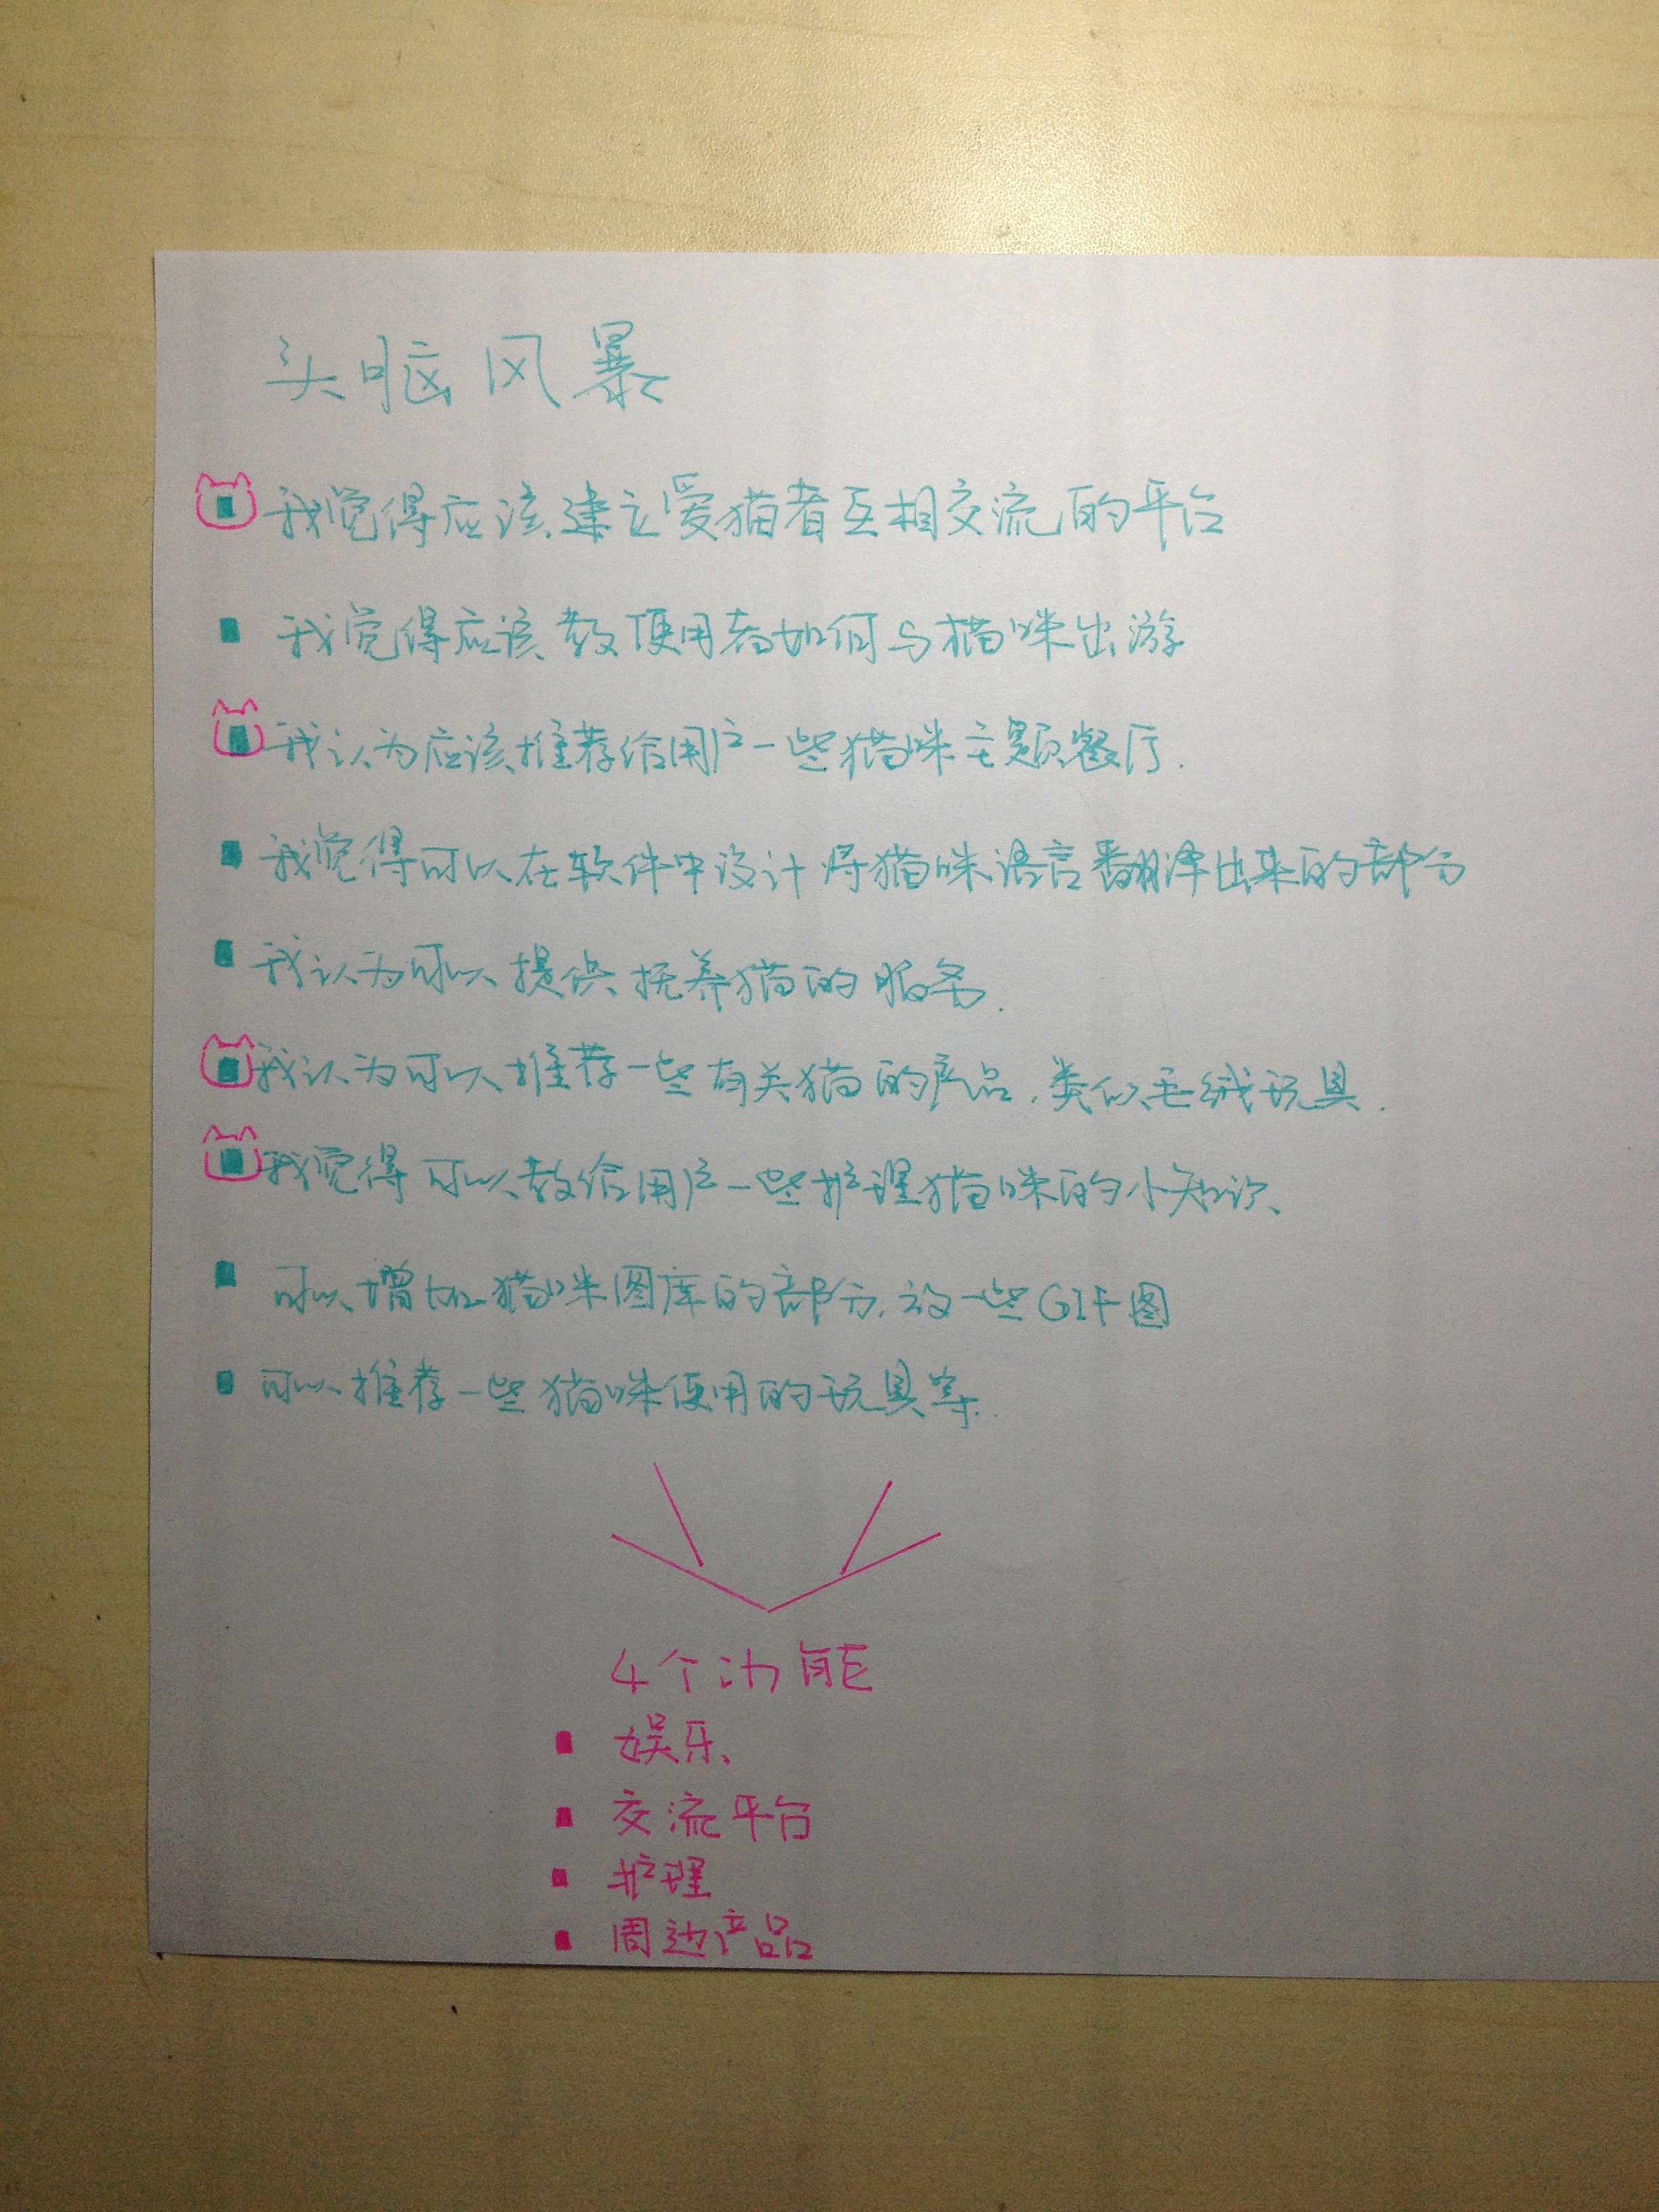 头脑风暴
我觉得应该建立爱猫者互相交流的平台
我觉得应该教使用者如何与猫咪出游
我认为应该推荐给用户一些猫咪主题餐厅.
我觉得可以在软件中设计将猫咪语言翻译出来的部分
我认为可以提供抚养猫的服务.
我认为可以推荐一些有关猫的产品,类似毛绒玩具.
我觉得可以教给用户一些护理猫咪的小知识、
可以增加猫咪图库的部分,放一些GIF图
可以推荐一些猫咪使用的玩具等..
4个功能
娱乐、
交流平台
护理
周边产品